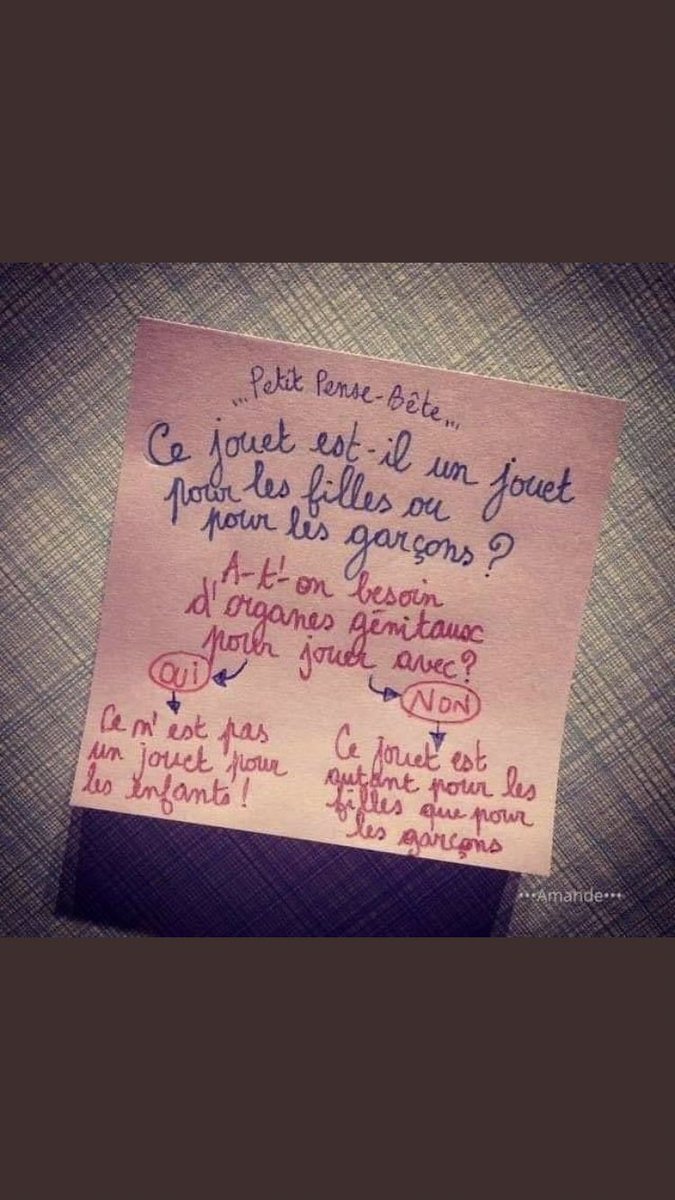 ...Petit Pense-Bête...
Ce jouet est-il un jouet
pour les filles ou
pour les garçons ?
A-t'-on besoin
d'organes génitaux
pour jouer avec?
OUI
NON
Ce n'est pas
un jouet pour
les enfants !
Ce jouet est
autant pour les
filles que pour
les garçons
•••Amande•••